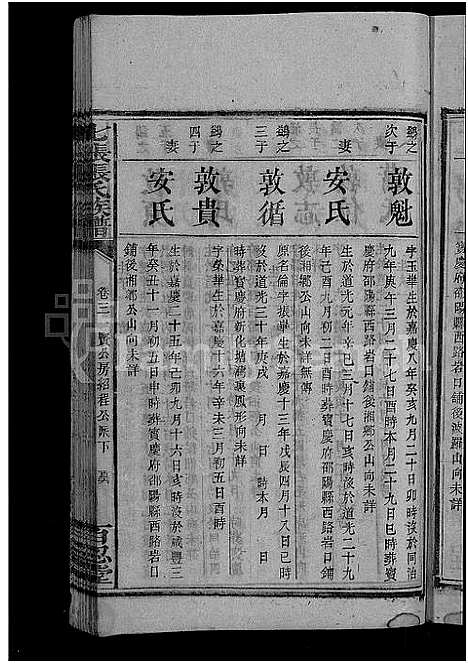 鷀之
次子
敦魁
字玉華生於嘉慶八年癸亥九月二十日卯時沒於同治
九年庚午三月二十七日酉時本月二十九日巳時葬寶
慶府邵陽縣西路岩口鋪後湘鄉公山向未詳
妻
安氏
生於道光元年辛巳三月十七日亥時沒於道光二十九
年己酉九月初二日酉時葬寶慶府邵陽縣西路岩口鋪
後湘鄉公山向未詳無傳
三子
敦循
原名倫字振華生於嘉慶十三年戊辰四月十八日巳時
沒於道光三十年庚戌 月 日 時本月 日
時葬寶慶府新化塘灣 鳳形向未詳
四子
敦貴
字榮華生於嘉慶十六年辛未三月初五日酉時
妻
安氏
生於嘉慶二十五年己卯九月十六日亥時沒於咸豐三
年癸丑十一月初五日申時葬寶慶府邵陽縣西路岩口
鋪後湘鄉公山向未詳
七張張氏族譜
卷三
公房紹程公派下
百忍堂
後慶府邵陽縣西路岩口鋪後 山向未詳